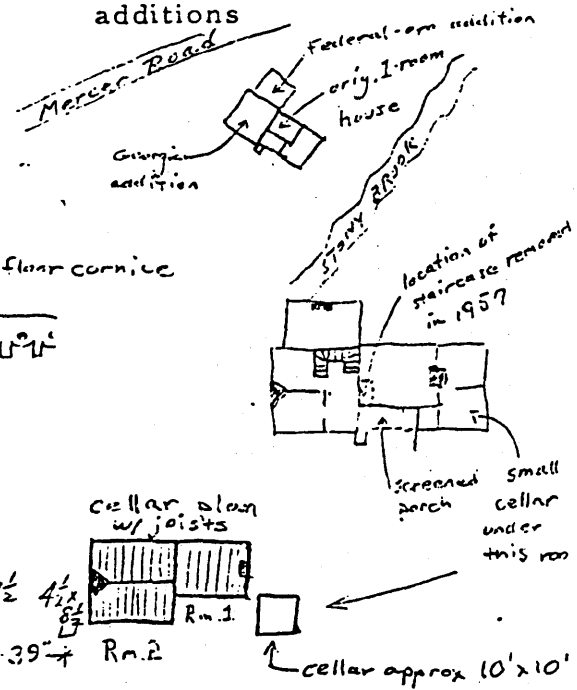 additions
Mercer Road
Federal-era addition
orig. 1-room
house
Georgian
addition
STONY BROOK
floor cornice
location of
staircase removed
in 1957
screened
porch
small
cellar
under
this room
cellar plan
w/ joists
4½ x
39"
Rm. 1
Rm. 2
cellar approx 10' x 10'